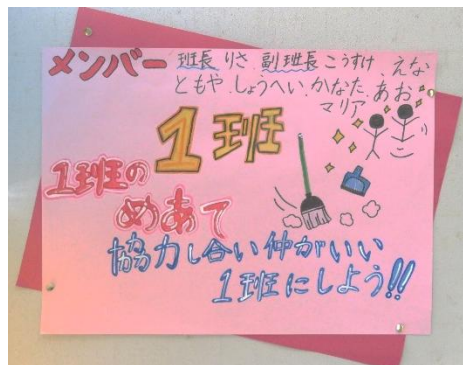 メンバー 班長 りさ、副班長 こうすけ、えな
ともや、しょうへい、かなた、あお
マリア
1班
1班の
めあて
協力し合い仲がいい
1班にしよう!!